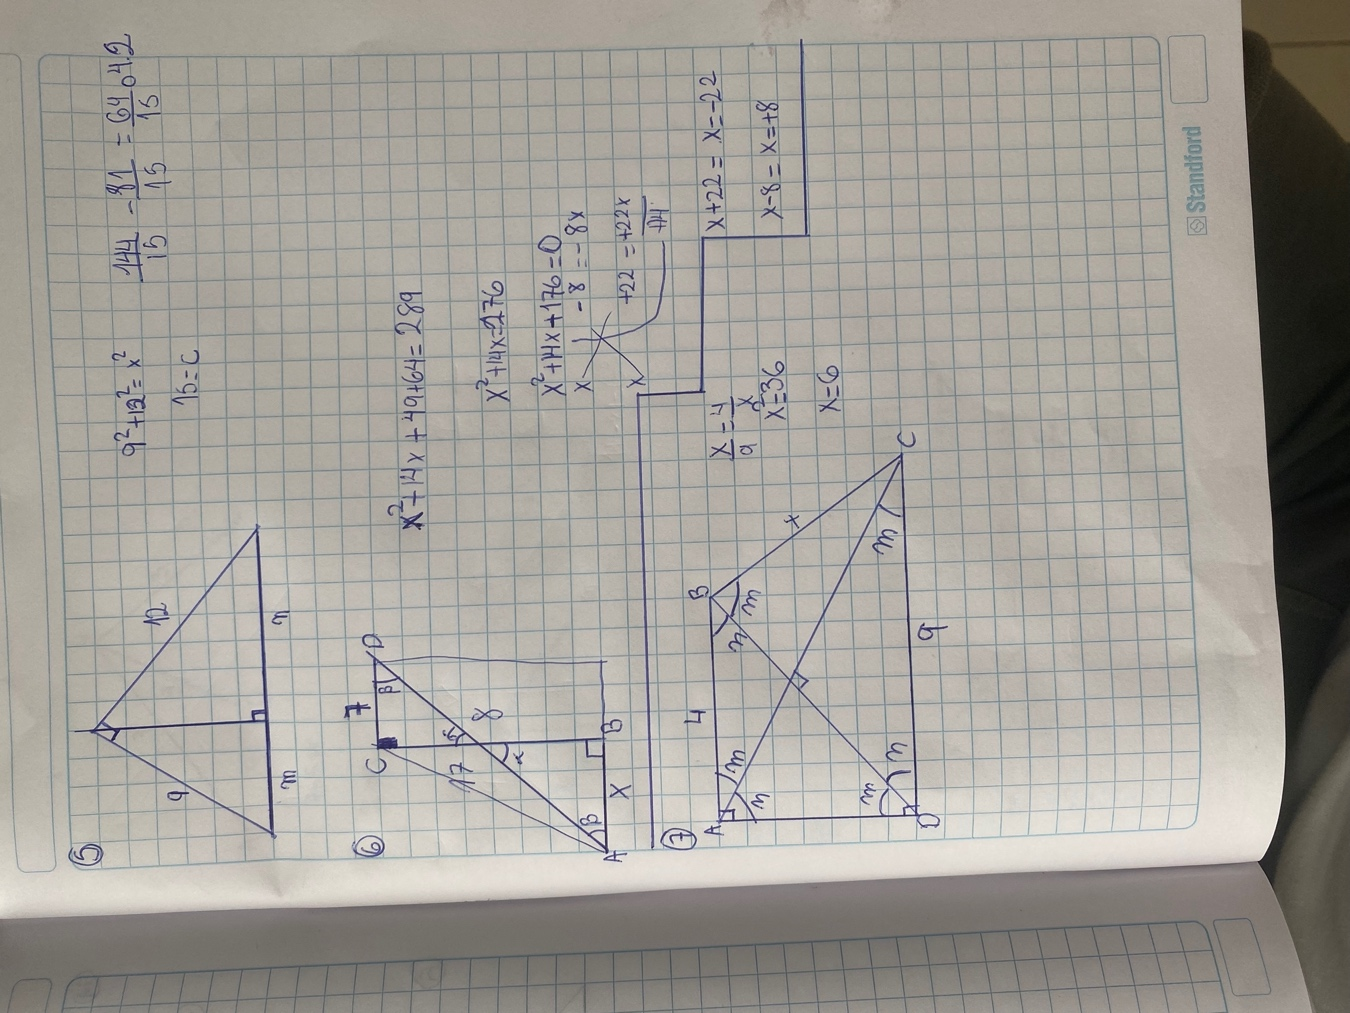 ⑤
9
12
m
n
9²+12²=x²
15=c
144/15 - 81/15 = 64/15 04.2
⑥
C
7
D
β
17
8
α
β
A
X
B
x²+14x+49+64=289
x²+14x=276
x²+14x+176=0
x -8=-8x
x +22=+22x
+14
x+22= x=-22
x-8= x=+8
⑦
A
4
B
m
n
n
m
x
m
n
m
D
9
C
x/9=4/x
x²=36
x=6
Standford